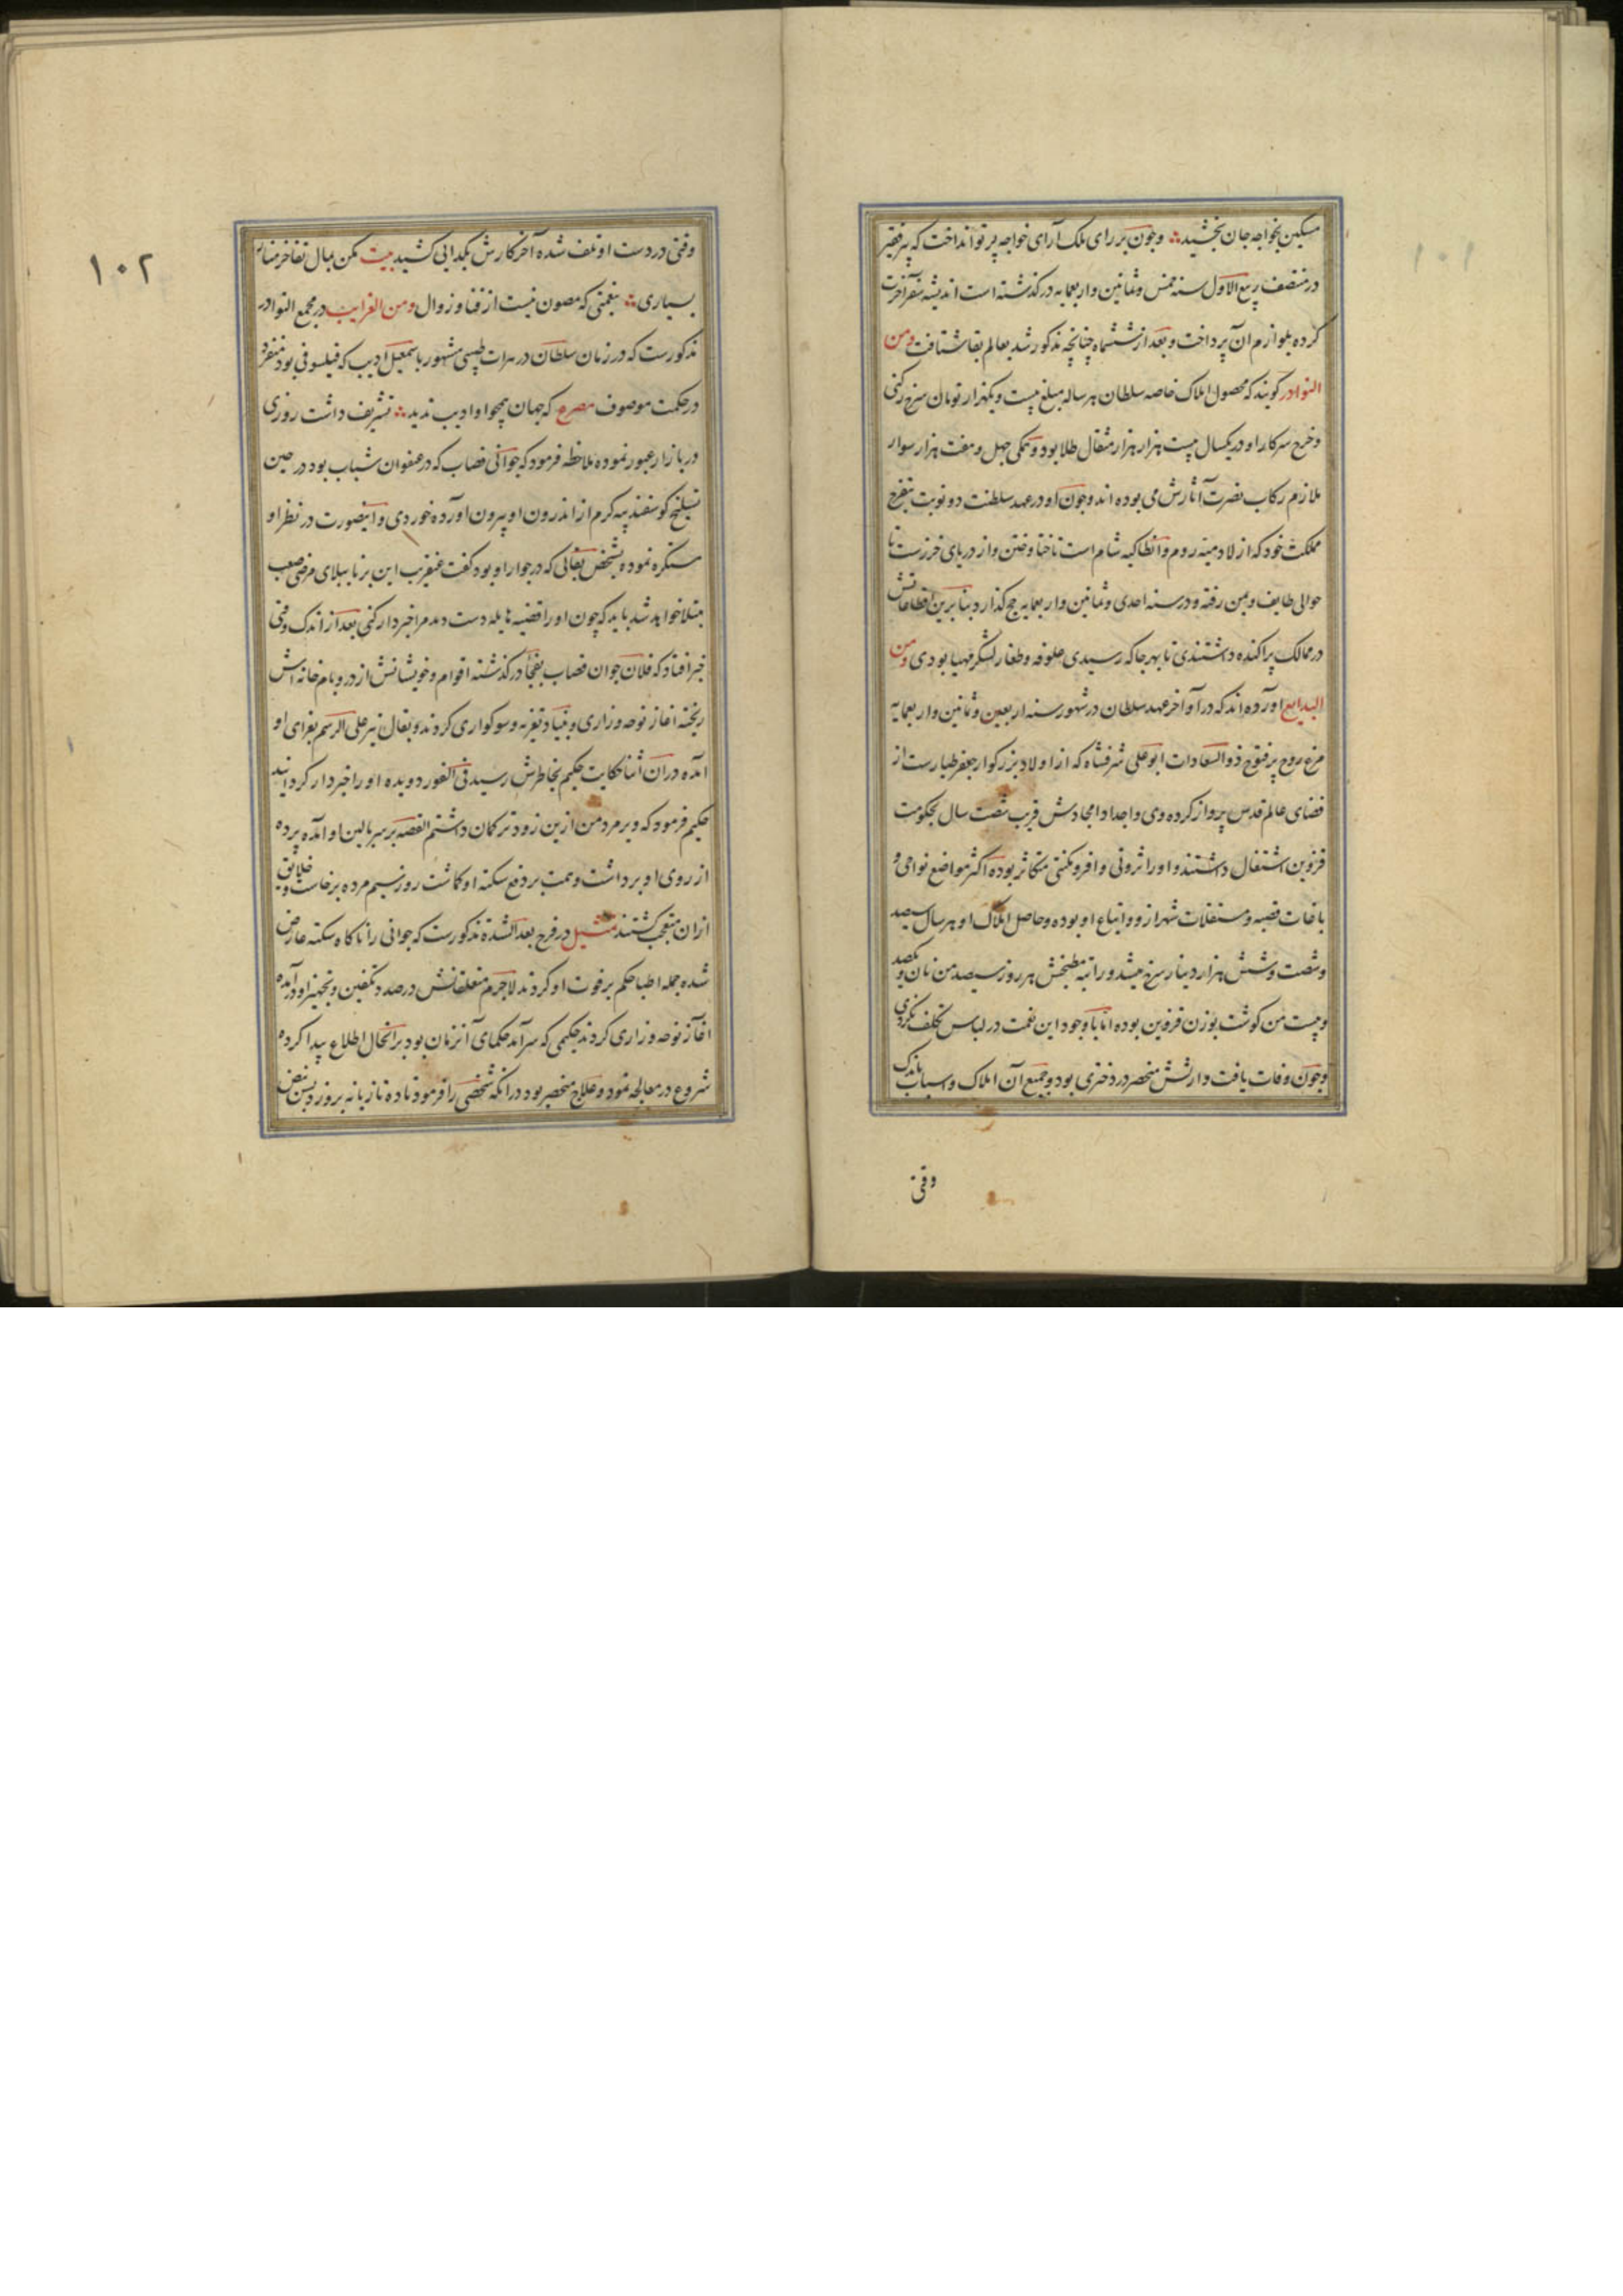 ۱۰۱
مسکین بخواجه جان بخشید وچون بر رای ملک آرای خواجه پرتو انداخت که پیر فقیر
در منتصف ربیع الاول سنه خمس وثمانین واربعمایه درگذشته است اندیشه سفر آخرت
کرده بلوازم آن پرداخت و بعد از ششماه چنانچه مذکور شد بعالم بقا شتافت ومن
النوادر گویند که محصول املاک خاصه سلطان هر ساله مبلغ بیست ویکهزار تومان سرخ رکنی
وخرج سرکار او در یکسال بیست هزار هزار مثقال طلا بود وهمگی چهل وهفت هزار سوار
ملازم رکاب نصرت آثارش می بوده اند وچون او در عهد سلطنت دو نوبت بتفرج
مملکت خود که از لادمیه روم وانطاکیه شام است تا ختا وختن واز دریای خزرست تا
حوالی طایف ویمن رفته ودر سنه احدی وثمانین واربعمایه حج گذارد بنا برین اقطاعاتش
در ممالک پراکنده داشتندی تا بهر جا که رسیدی علوفه وطغار لشکر مهیا بودی ومن
البدایع آورده اند که در آواخر عهد سلطان در شهور سنه اربعین وثمانین واربعمایه
مرغ روح پر فتوح ذو السعادات ابو علی شرفشاه که از اولاد بزرگوار جعفر طیارست از
فضای عالم قدس پرواز کرده وی واجداد امجادش قریب شصت سال بحکومت
قزوین اشتغال داشتند و او را ثروتی وافر ومکنتی متکاثر بوده اکثر مواضع نواحی و
باغات قصبه ومستغلات شهر از و واتباع او بوده وحاصل املاک او هر سال سیصد
وشصت وشش هزار دینار سرخ میشد وراتبه مطبخش هر روز سیصد من نان ویکصد
وبیست من گوشت بوزن قزوین بوده اما با وجود این نعمت در لباس تکلف نکردی
وچون وفات یافت وارثش منحصر در دختری بود وجمیع آن املاک واسباب باندک
وقتی
۱۰۲
وقتی در دست او تلف شده آخر کارش بگدایی کشید بیت مکن بمال تفاخر مناز
بسیاری بنعمتی که مصون نیست از فنا وزوال ومن الغرایب در مجمع النوادر
مذکورست که در زمان سلطان در هرات طبیبی مشهور باسمعیل ادیب که فیلسوفی بود متفرد
در حکمت موصوف مصرع که جهان همچو او ادیب ندید تشریف داشت روزی
در بازار عبور نموده ملاحظه فرمود که جوانی قصاب که در عنفوان شباب بود در حین
تسلیخ گوسفند پیه گرم از اندرون او بیرون آورده خوردی واینصورت در نظر او
مستکره نموده بشخص بقالی که در جوار او بود گفت عنقریب این برنا ببلای مرضی صعب
مبتلا خواهد شد باید که چون او را قضیه هایله دست دهد مرا خبردار کنی بعد از اندک وقتی
خبر افتاد که فلان جوان قصاب بفجأ درگذشته اقوام وخویشانش از در وبام خانه اش
ریخته آغاز نوحه وزاری وبنیاد تعزیه وسوکواری کردند وبقال نیز علی الرسم بعزای او
آمده در آن اثنا حکایت حکیم بخاطرش رسید فی الفور دویده او را خبردار گردانید
حکیم فرمود که دیر مرد من ازین زودتر گمان داشتم القصه بر سر بالین او آمده پرده
از روی او برداشت وهمت بر دفع سکته او گماشت روز سیم مرده برخاست وخلایق
از آن متعجب گشتند تمثیل در فرج بعد الشده مذکورست که جوانی را ناگاه سکته عارض
شده جمله اطبا حکم بر فوت او کردند لاجرم متعلقانش در صدد تکفین وتجهیز او درآمده
آغاز نوحه وزاری کردند حکیمی که سرآمد حکمای آنزمان بود بر آنحال اطلاع پیدا کرده
شروع در معالجه نمود وعلاج منحصر بود در آنکه شخصی را فرمود تا ده تازیانه بروزد پس نبض